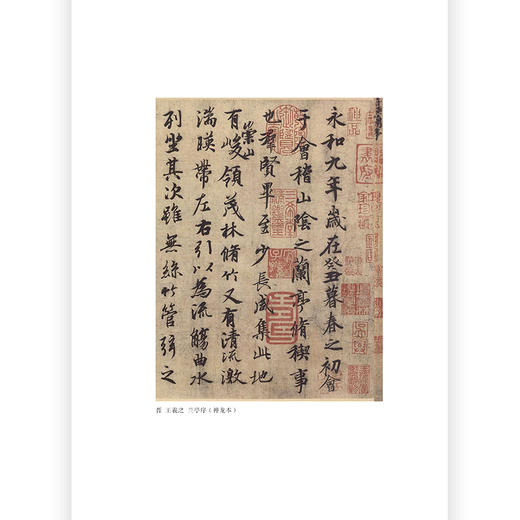 永和九年歲在癸丑暮春之初會
于會稽山陰之蘭亭脩稧事
也群賢畢至少長咸集此地
有崇山峻領茂林脩竹又有清流激
湍暎帶左右引以為流觴曲水
列坐其次雖無絲竹管弦之
晋 王羲之 兰亭序（神龙本）